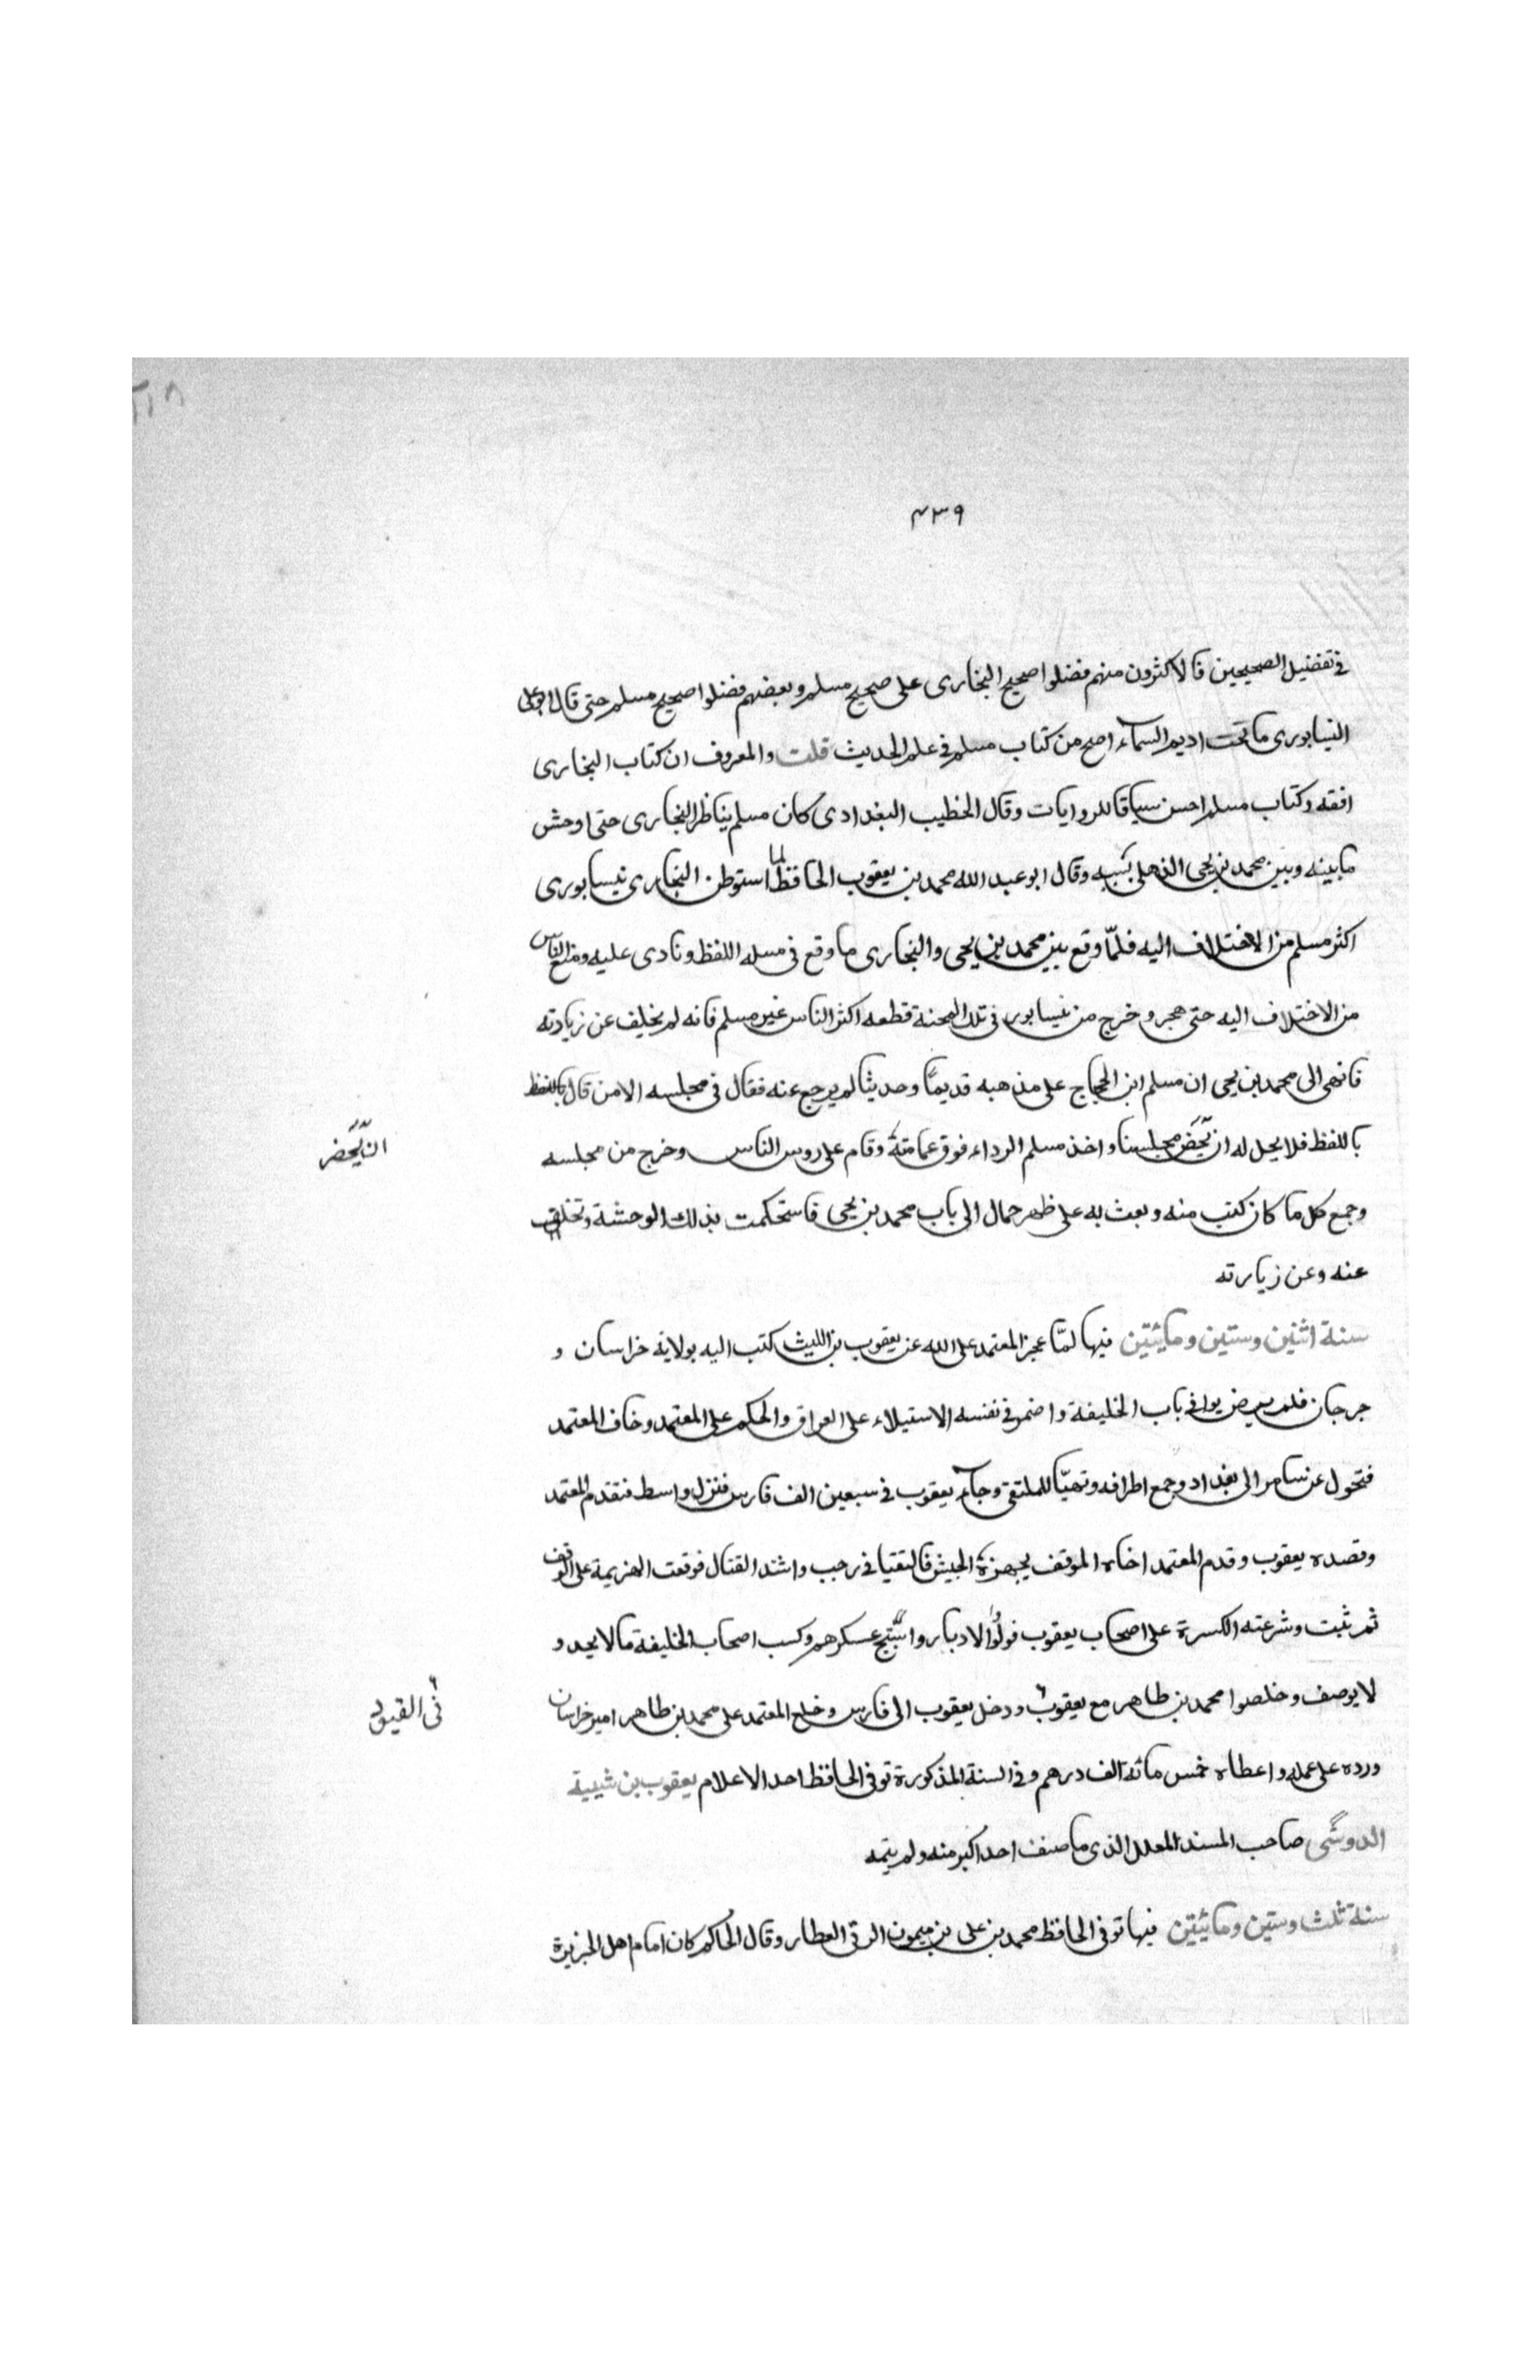 ٢١٨
٤٣٩
فى تفضيل الصحيحين فالاكثرون منهم فضلوا صحيح البخارى على صحيح مسلم وبعضهم فضلوا صحيح مسلم حتى قال ابو على
النيسابورى ما تحت اديم السماء اصح من كتاب مسلم فى علم الحديث قلت والمعروف ان كتاب البخارى
افقه وكتاب مسلم احسن سياقا للروايات وقال الخطيب البغدادى كان مسلم يناظر البخارى حتى اوحش
ما بينه وبين محمد بن يحيى الذهلى بسببه وقال ابو عبد الله محمد بن يعقوب الحافظ لما استوطن البخارى نيسابورى
اكثر مسلم من الاختلاف اليه فلمّا وقع بين محمد بن يحيى والبخارى ما وقع فى مسله اللفظ ونادى عليه ومنع الناس
من الاختلاف اليه حتى هجر وخرج من نيسابور فى تلك المحنة قطعه اكثر الناس غير مسلم فانه لم يخلف عن زيادته
فانهى الى محمد بن يحيى ان مسلم ابن الحجاج على مذهبه قديمًا وحديثا لم يرجع عنه فقال فى مجلسه الا من قال باللفظ
باللفظ فلا يحل له ان يَحضر مجلسنا واخذ مسلم الرداء فوق عمامته وقام على روس الناس وخرج من مجلسه
ان يَحضر
وجمع كل ما كان كتب منه وبعث به على ظهر حمال الى باب محمد بن يحيى فاستحكمت بذلك الوحشة وتخلف
عنه وعن زيارته
سنة اثنين وستين ومايتين فيها لمّا عجز المعتمد على الله عن يعقوب بن الليث كتب اليه بولاية خراسان و
جرجان فلم يرض يوافى باب الخليفة واضمر فى نفسه الاستيلاء على العراق والحكم على المعتمد وخاف المعتمد
فتحول عن سامرا الى بغداد وجمع اطرافه وتهيّا للملتقى وجاء يعقوب فى سبعين الف فارس فنزل واسط فتقدم المعتمد
وقصده يعقوب وقدم المعتمد اخاه الموفق بجهزة الجيش فالتقيا فى رجب واشتد القتال فوقعت الهزيمة على الموفق
ثم ثبت وشرعته الكسرة على اصحاب يعقوب فولّوا الادبار واستبيح عسكرهم وكسب اصحاب الخليفة ما لا يحد و
لا يوصف وخلصوا محمد بن طاهر مع يعقوب ودخل يعقوب الى فارس وخلع المعتمد على محمد بن طاهر امير خراسان
فى القيود
ورده على عمله واعطاه خمس مائة الف درهم وفى السنة المذكورة توفى الحافظ احد الاعلام يعقوب بن شيبة
الدوسى صاحب المسند المعلل الذى ما صنف احد اكبر منه ولم يتمه
سنة ثلث وستين ومايتين فيها توفى الحافظ محمد بن على بن ميمون الرقى العطار وقال الحاكم كان امام اهل الجزيرة